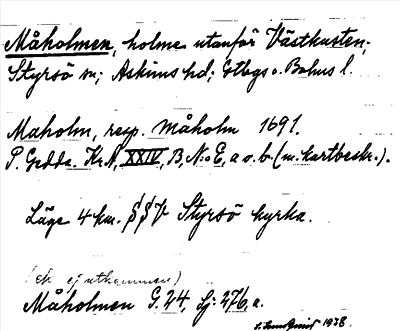 Måholmen, holme utanför Västkusten;
Styrsö sn; Askims hd; Gtbgs o. Bohus l.
Maholm, resp. Måholm 1691.
P. Gedda. Kr.A, XXIV, B, N:o E, a o. b. (m. kartbeskr.).
Läge 4 km. SSV Styrsö kyrka.
(ek. ej utkommen)
Måholmen G. 24, Sj: 276, a.
1938.